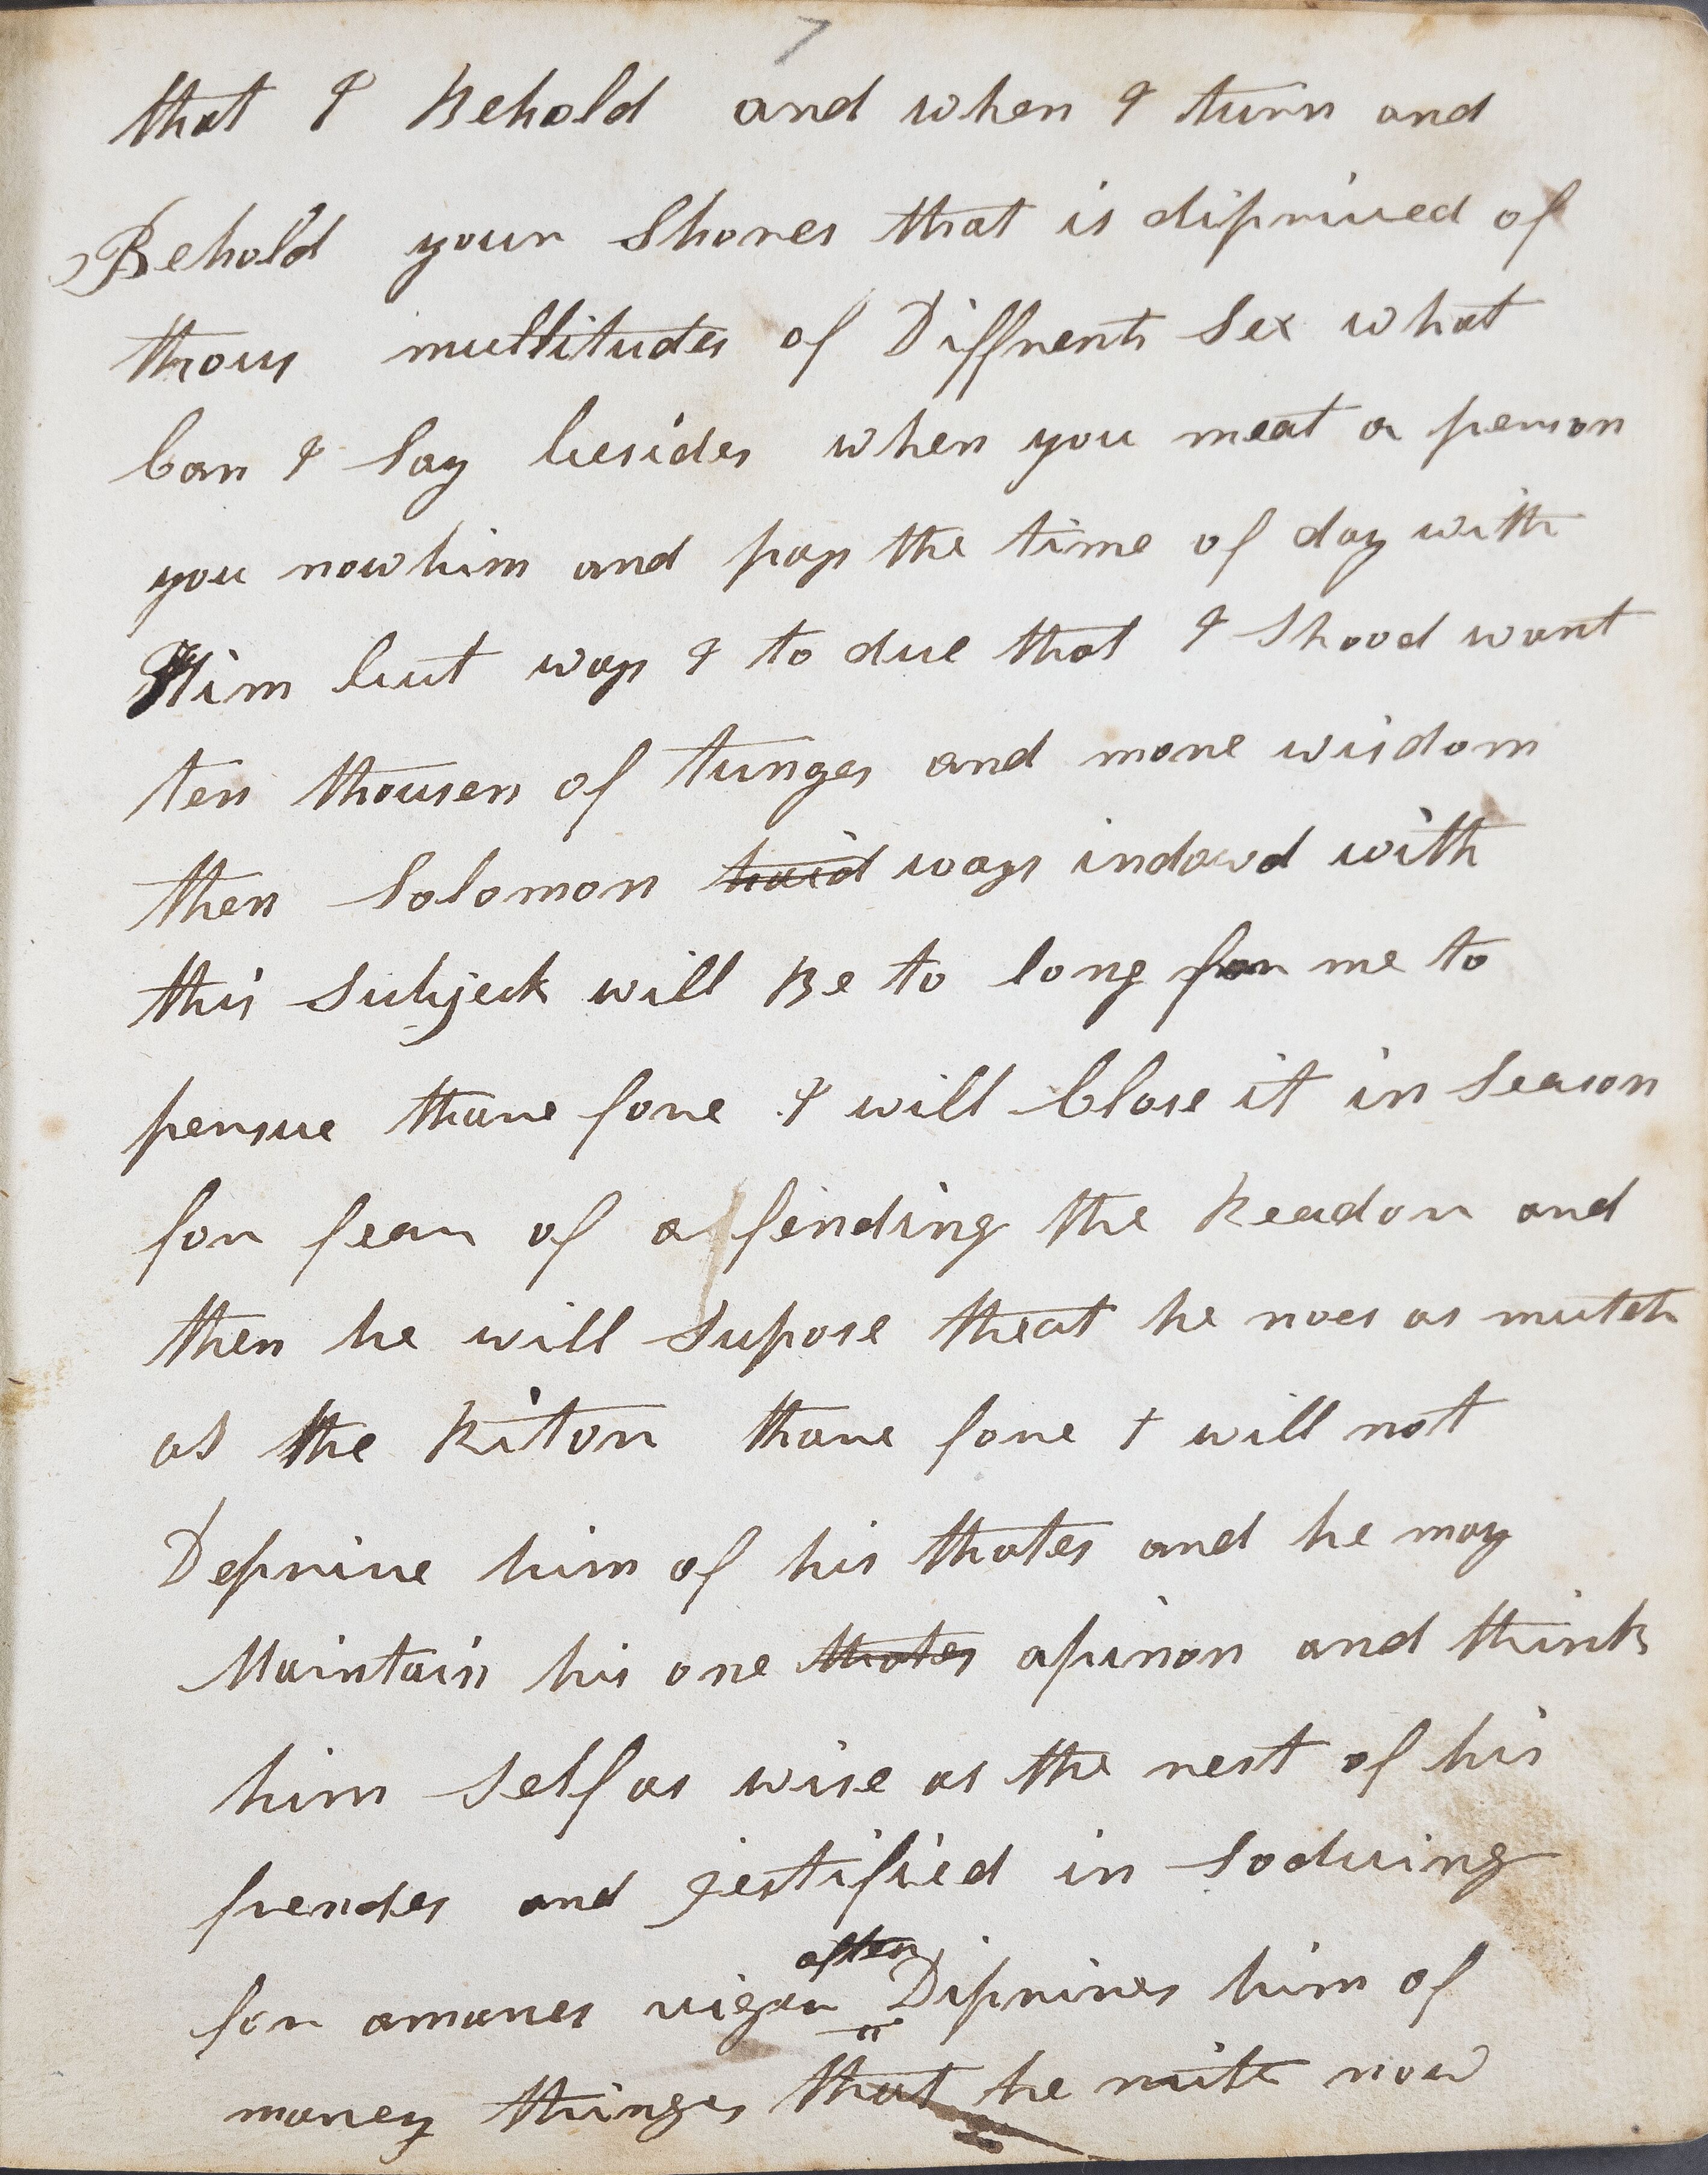 7
that I Behold and when I turn and
Behold your Shores that is diprived of
thous multitudes of Diffrent Sex what
Can I Say besides when you meat a person
you now him and pas the time of day with
Him but was I to due that I Shood want
ten thousen of tunges and more wisdom
then Solomon was indowd with
this Subject will Be to long for me to
persue thare fore I will Close it in Season
for fear of affending the Reador and
then he will Supose theat he noes as mutch
as the Ritor thare fore I will not
Deprive him of his thotes and he may
Maintain his one thotes apinon and think
him Self as wise as the rest of his
frendes and jestified in Soduing
for amanes vigor often Diprives him of
maney thinges that he mite now